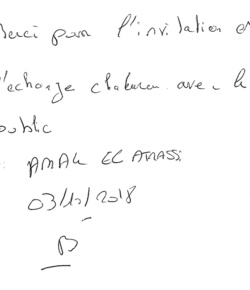 Merci pour l'invitation et
l'échange chaleureux avec le
public
AMAL EL AMASSI
03/10/2018